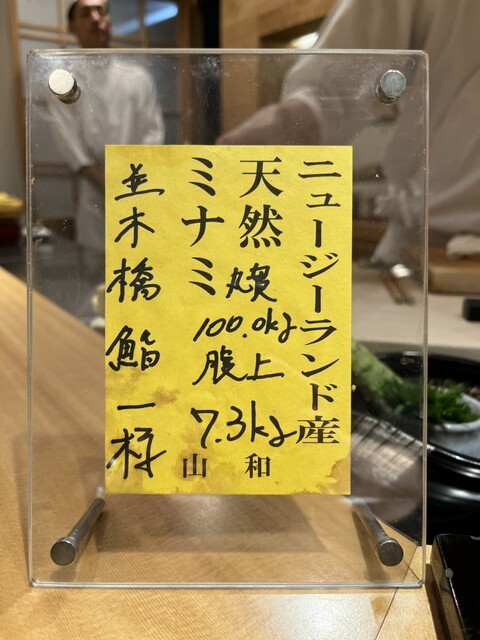 ニュージーランド産
天然
ミナミ
100.0kg
腹上
7.3kg
山和
並木橋 鮨一様